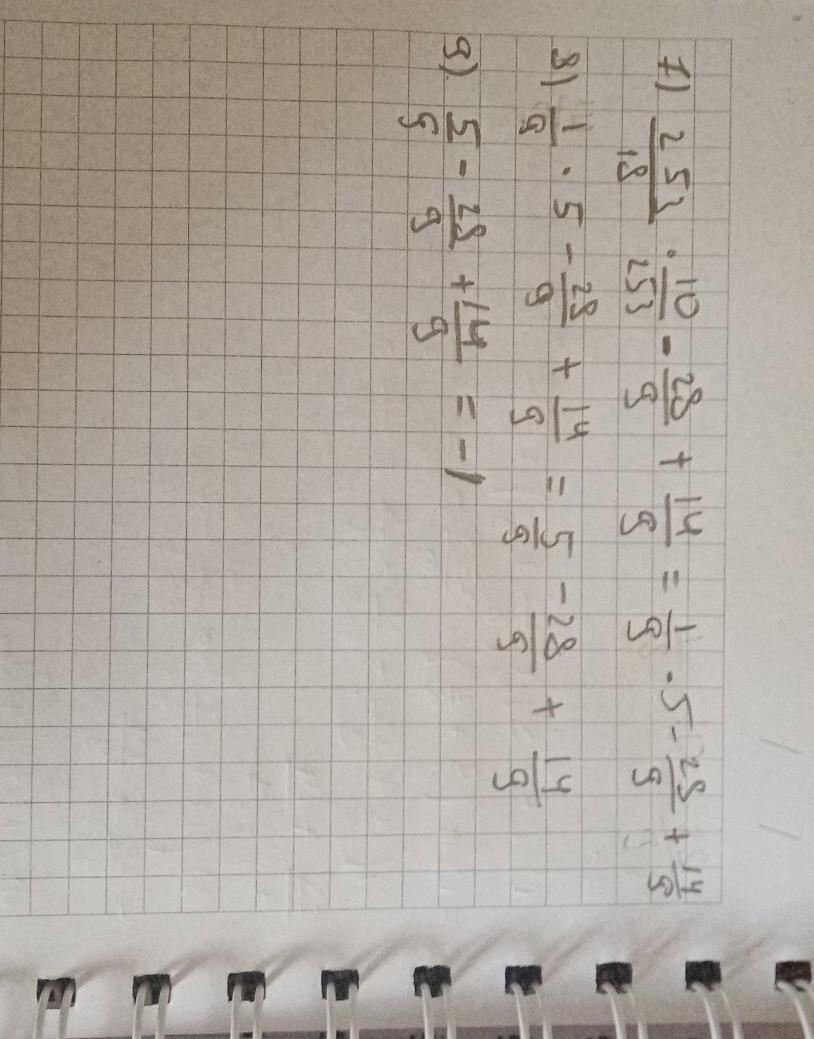 7) 253/18 · 10/253 - 28/9 + 14/9 = 1/9 · 5 - 28/9 + 14/9
8) 1/9 · 5 - 28/9 + 14/9 = 5/9 - 28/9 + 14/9
9) 5/9 - 28/9 + 14/9 = -1